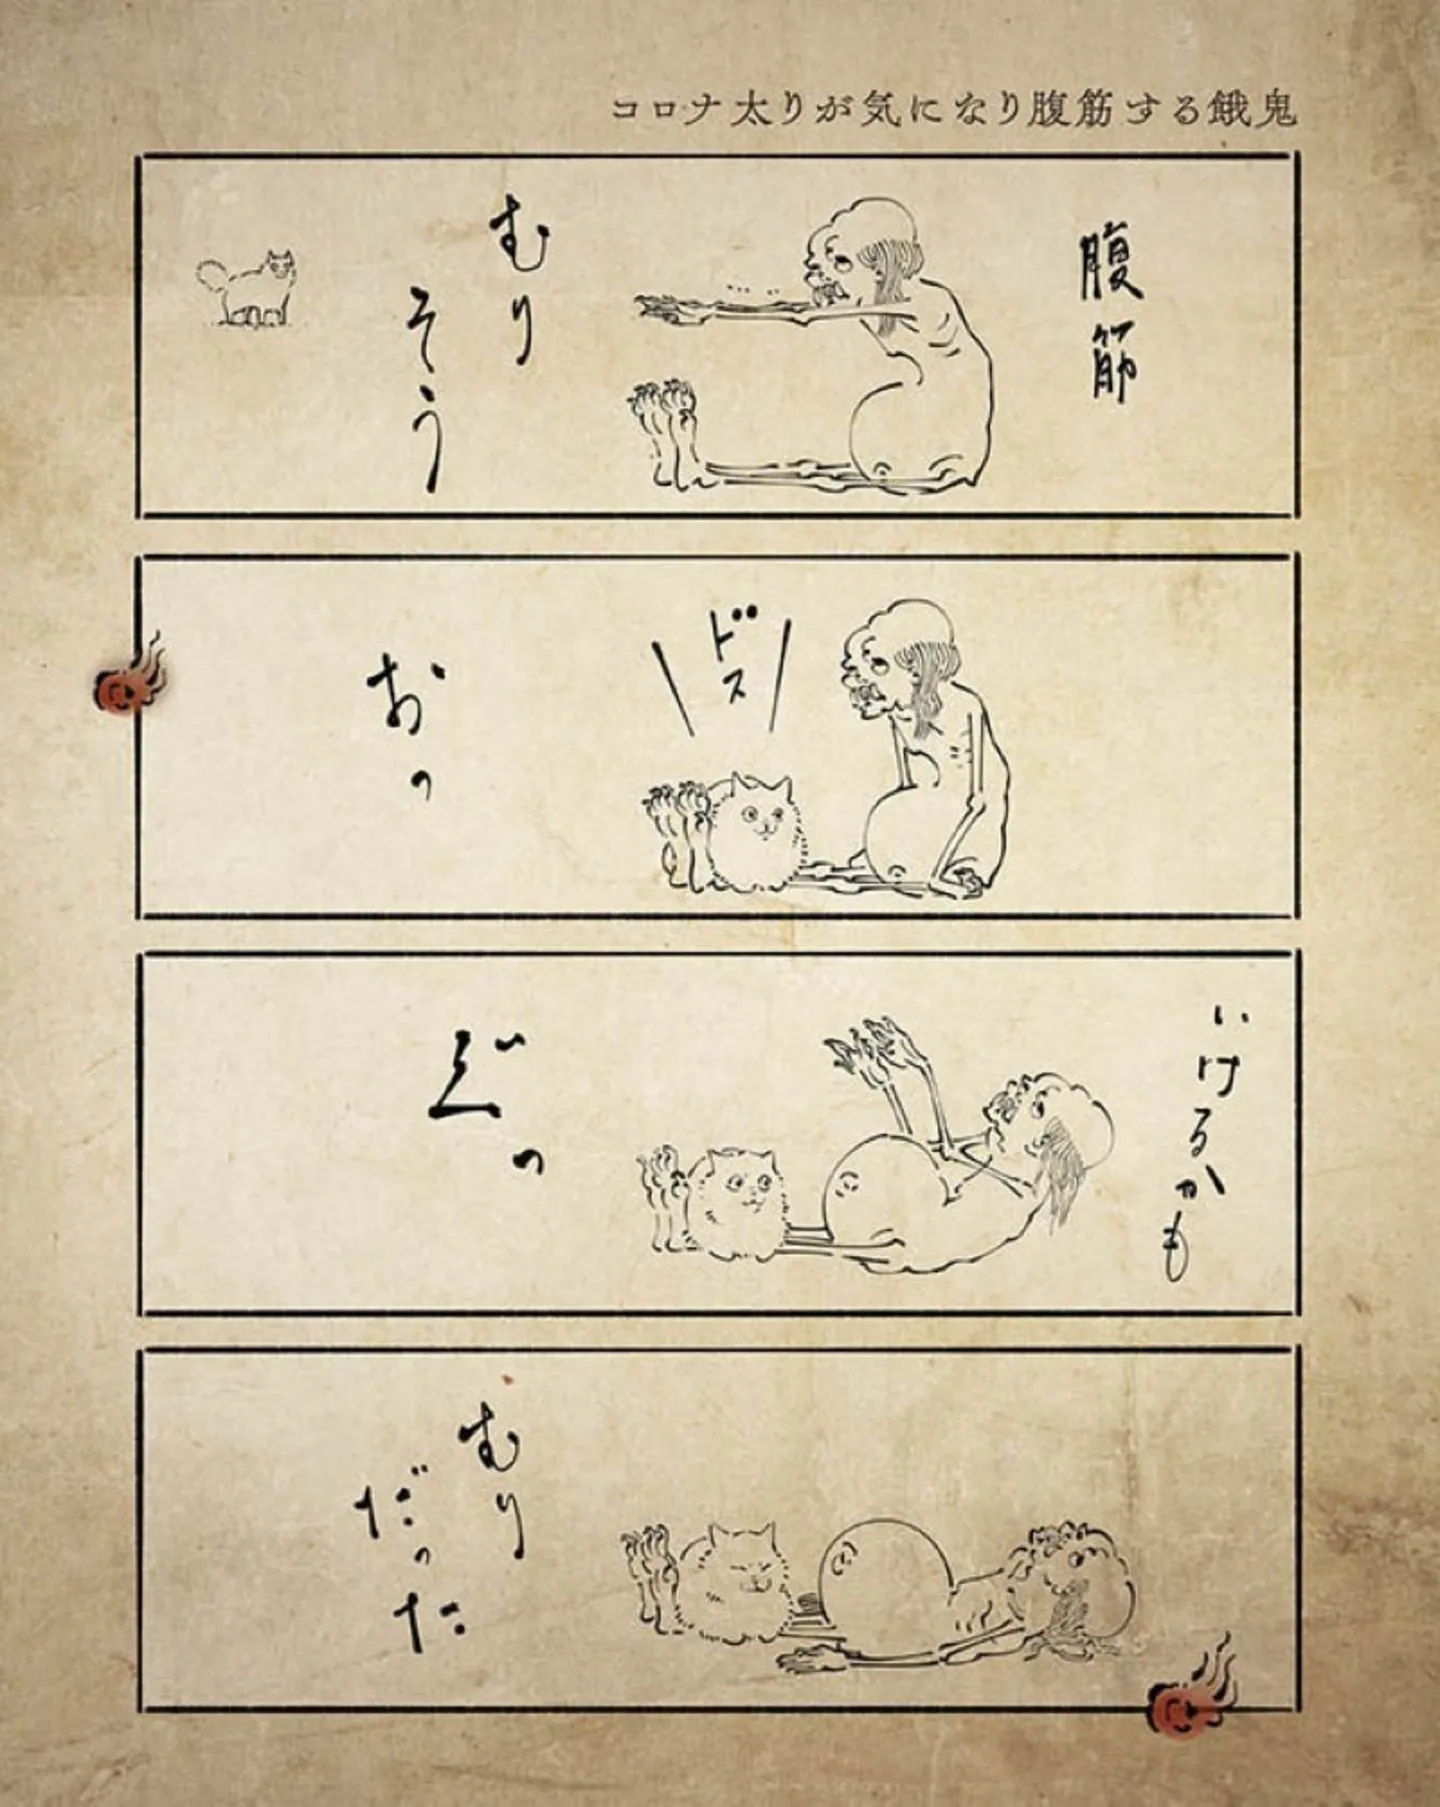 コロナ太りが気になり腹筋する餓鬼
腹筋
むり
そう
ドス
おっ
いけるかも
ぐっ
むり
だった